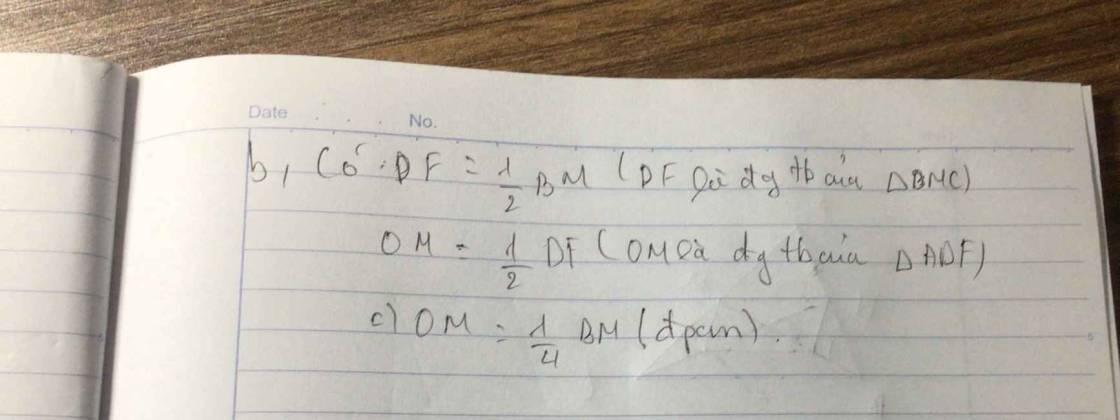 Date . . . . No.
b, Có: DF = 1/2 BM (DF là đg tb của ΔBMC)
OM = 1/2 DF (OM là đg tb của ΔADF)
c) OM = 1/4 BM (đpcm).